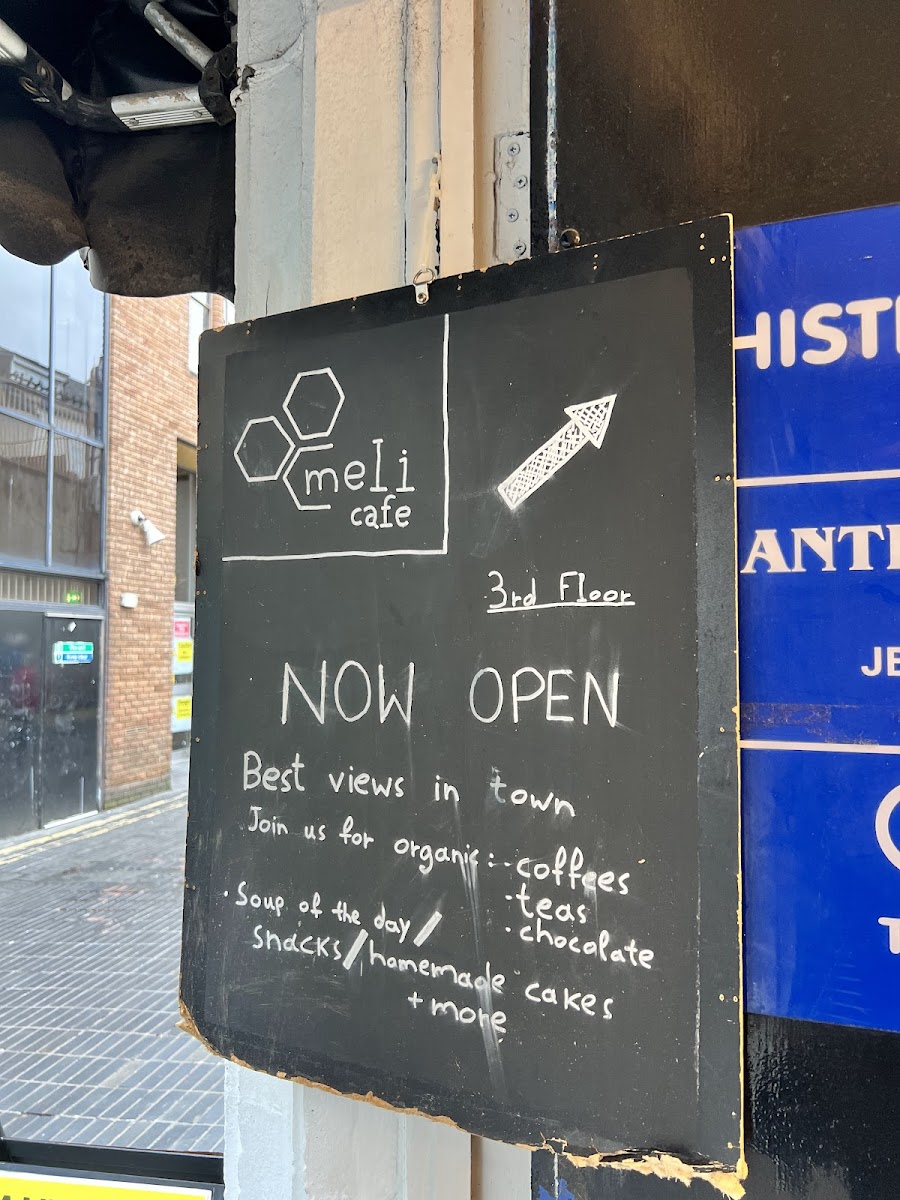 meli
cafe
3rd Floor
NOW OPEN
Best views in town
Join us for organic :- coffees
· teas
· chocolate
· Soup of the day /
snacks / homemade cakes
+ more
HIST
ANTI
JE